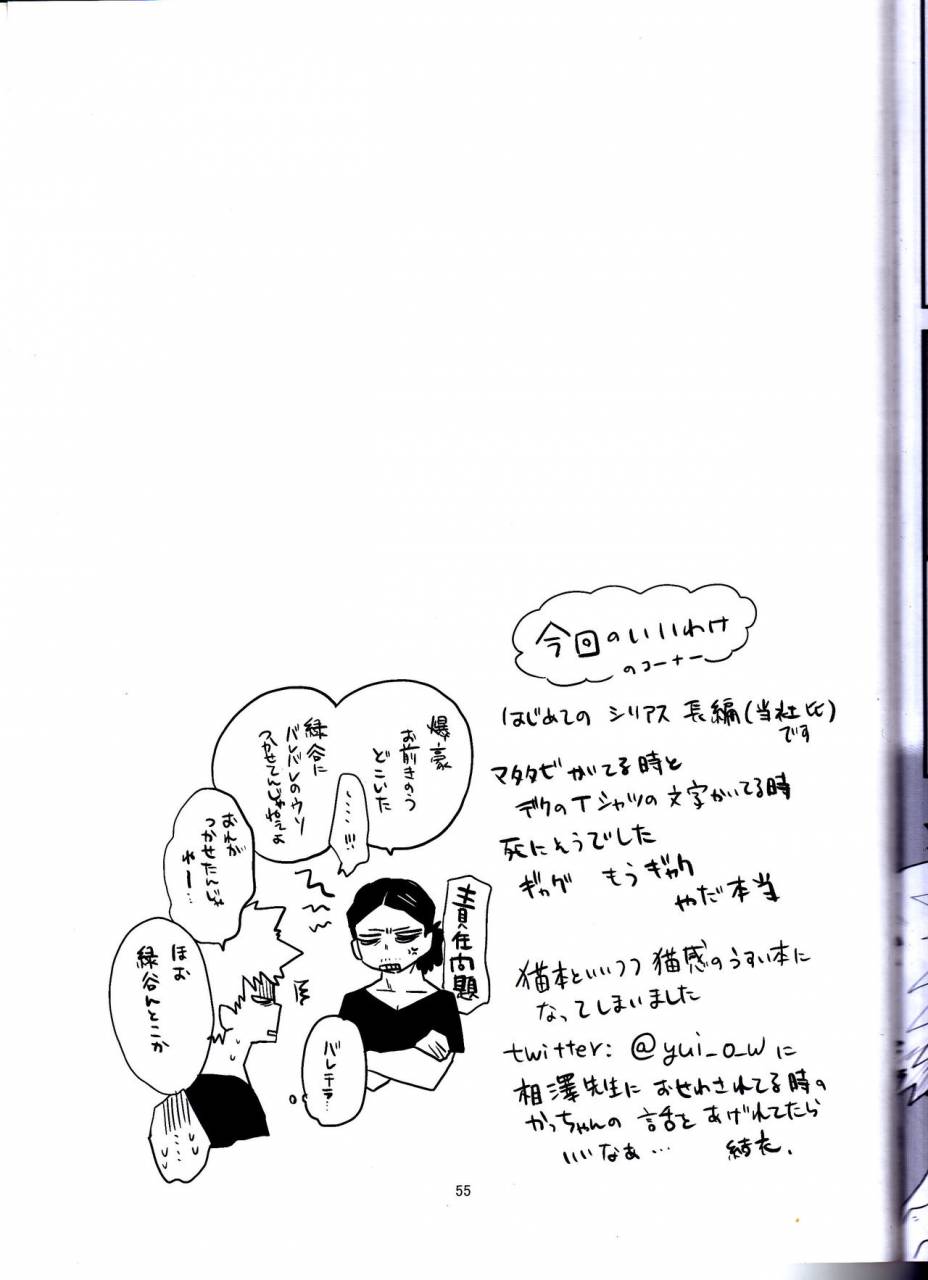 今回のいいわけ
のコーナー
はじめての シリアス 長編(当社比)
です
マタタビがてる時と
デクのTシャツの文字かいてる時
死にそうでした
ギャグ もうギャグ
やだ本当
猫本といいつつ 猫感のうすい本に
なってしまいました
twitter: @yui_o_w に
相澤先生に おせわされてる時の
かっちゃんの 話を あげれてたら
いいなぁ… 結衣.
爆豪
お前きのう
どこいた
……!!!
緑谷に
バレバレのウソ
つかせてんじゃねぇよ
責任問題
おれが
つかせたんじゃ
ねー…
ほお
緑谷んとこか
バレテラ…
55